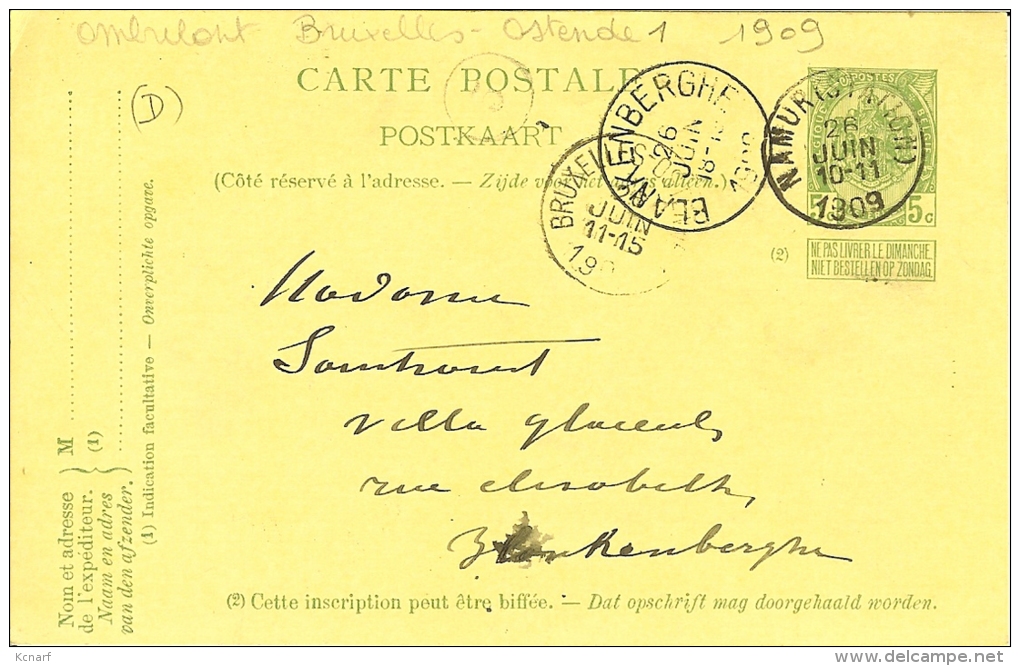 ombulant Bruxelles - Ostende 1 1909
(D)
CARTE POSTALE
POSTKAART
(Côté réservé à l'adresse. — Zijde voor het adres alleen.)
BLANKENBERGHE
26
JUIN
18-1
BRUXELLES
JUIN
11-15
NAMUR (STATION)
26
JUIN
10-11
1909
POSTES
5 5c
(2)
NE PAS LIVRER LE DIMANCHE.
NIET BESTELLEN OP ZONDAG.
Madame
villa
rue elisabeth,
Blankenberghe
(2) Cette inscription peut être biffée. — Dat opschrift mag doorgehaald worden.
Nom et adresse
de l'expéditeur.
Naam en adres
van den afzender.
M
(1)
(1) Indication facultative — Onverplichte opgave.
Kcnarf
delcampe.net